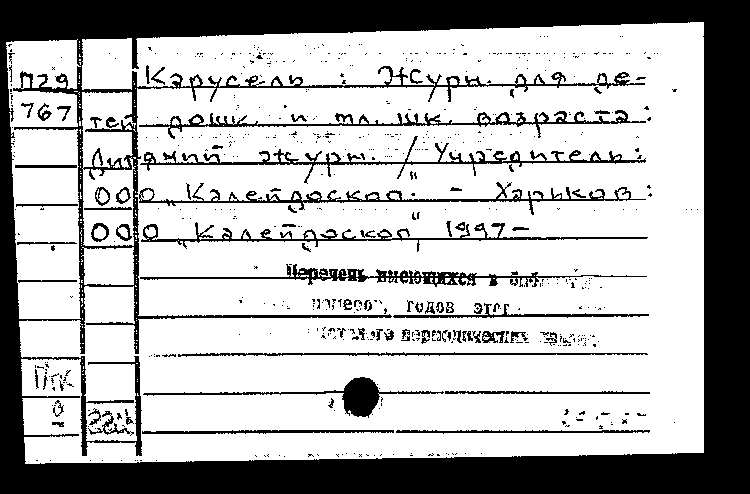 П29 Карусель : Журн. для де-
767 тей дошк. и мл. шк. возраста :
Дитячий журн. / Учредитель:
ООО „Калейдоскоп". – Харьков :
ООО „Калейдоскоп", 1997 –
Перечень имеющихся в
номеров, годов
периодических